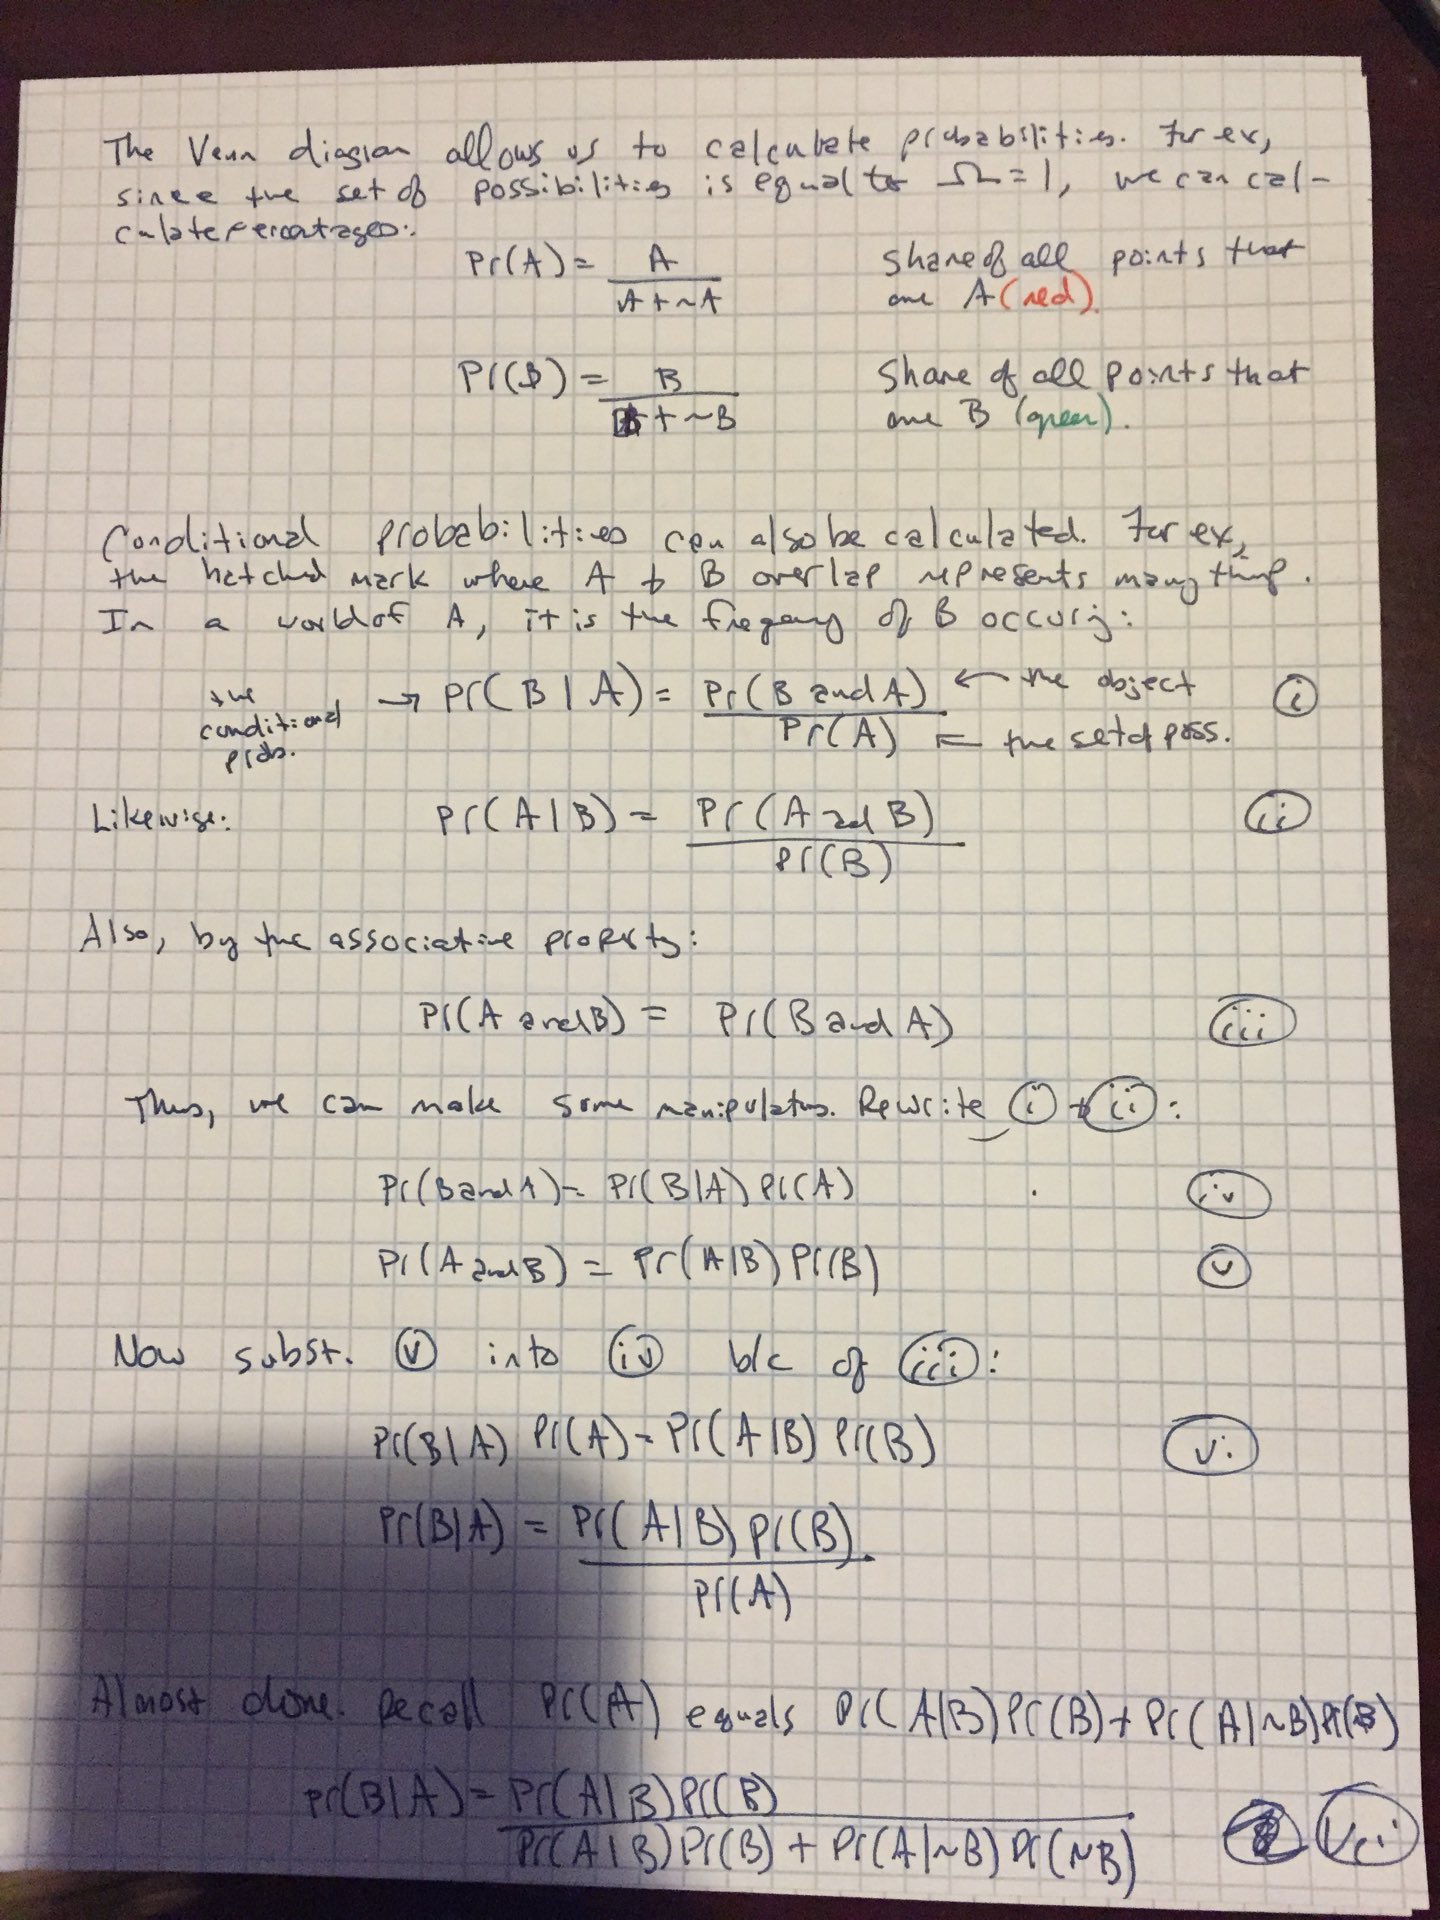 The Venn diagram allows us to calculate probabilities. For ex,
since the set of possibilities is equal to Ω=1, we can cal-
culate percentages:
Pr(A) = A / (A + ~A)
share of all points that
are A (red).
Pr(B) = B / (B + ~B)
Share of all points that
are B (green).
Conditional probabilities can also be calculated. For ex,
the hatched mark where A & B overlap represents many things.
In a world of A, it is the frequency of B occurring:
the conditional prob. → Pr(B|A) = Pr(B and A) / Pr(A) ← the object ← the set of poss. (i)
Likewise: Pr(A|B) = Pr(A and B) / Pr(B) (ii)
Also, by the associative property:
Pr(A and B) = Pr(B and A) (iii)
Thus, we can make some manipulations. Rewrite (i) + (ii):
Pr(B and A) = Pr(B|A) Pr(A) (iv)
Pr(A and B) = Pr(A|B) Pr(B) (v)
Now subst. (v) into (iv) b/c of (iii):
Pr(B|A) Pr(A) = Pr(A|B) Pr(B) (vi)
Pr(B|A) = Pr(A|B) Pr(B) / Pr(A)
Almost done. Recall Pr(A) equals Pr(A|B)Pr(B) + Pr(A|~B)Pr(~B)
Pr(B|A) = Pr(A|B)Pr(B) / (Pr(A|B)Pr(B) + Pr(A|~B) Pr(~B)) (vii)